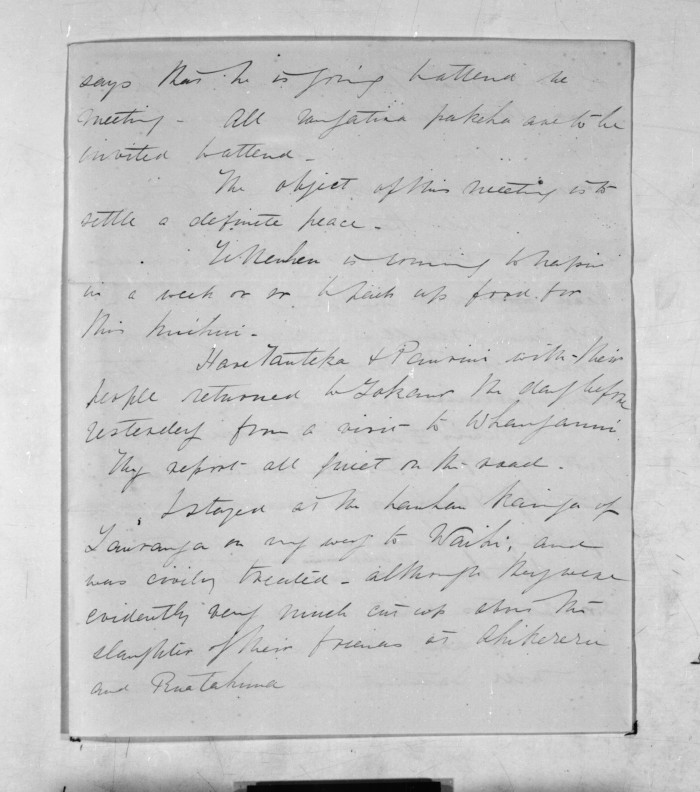 says that he is going to attend the
meeting - All rangatira pakeha are to be
invited to attend -
The object of this meeting is to
settle a definite peace -
Te Heuheu is coming to Napier
in a week or so to pick up food for
this huihui -
Hare Tauteka & Paurini with their
people returned to Tokanu the day before
yesterday from a visit to Whanganui.
They report all quiet on the road.
I stayed at the hauhau kainga of
Tauranga on my way to Waihi, and
was civilly treated - although they were
evidently very much cut up about the
slaughter of their friends at Ahikereru
and Ruatahuna